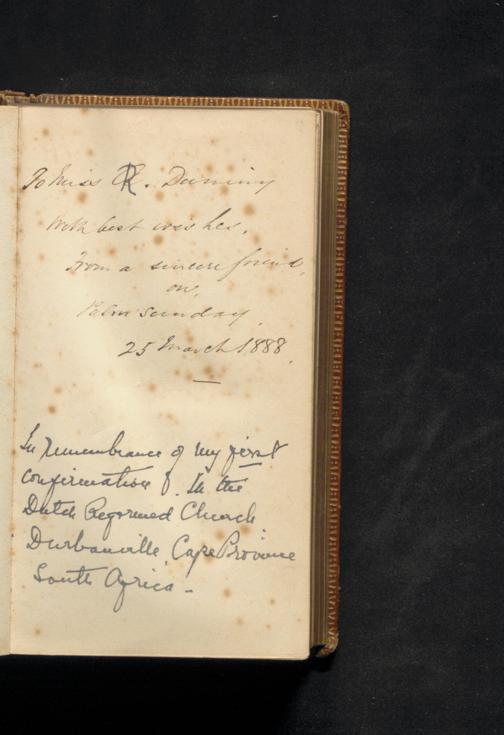 To Miss R. Deminy
With best wishes,
From a sincere friend,
on,
Palm sunday,
25 March 1888.
In remembrance of my first
confirmation. In the
Dutch Reformed Church
Durbanville Cape Province
South Africa -